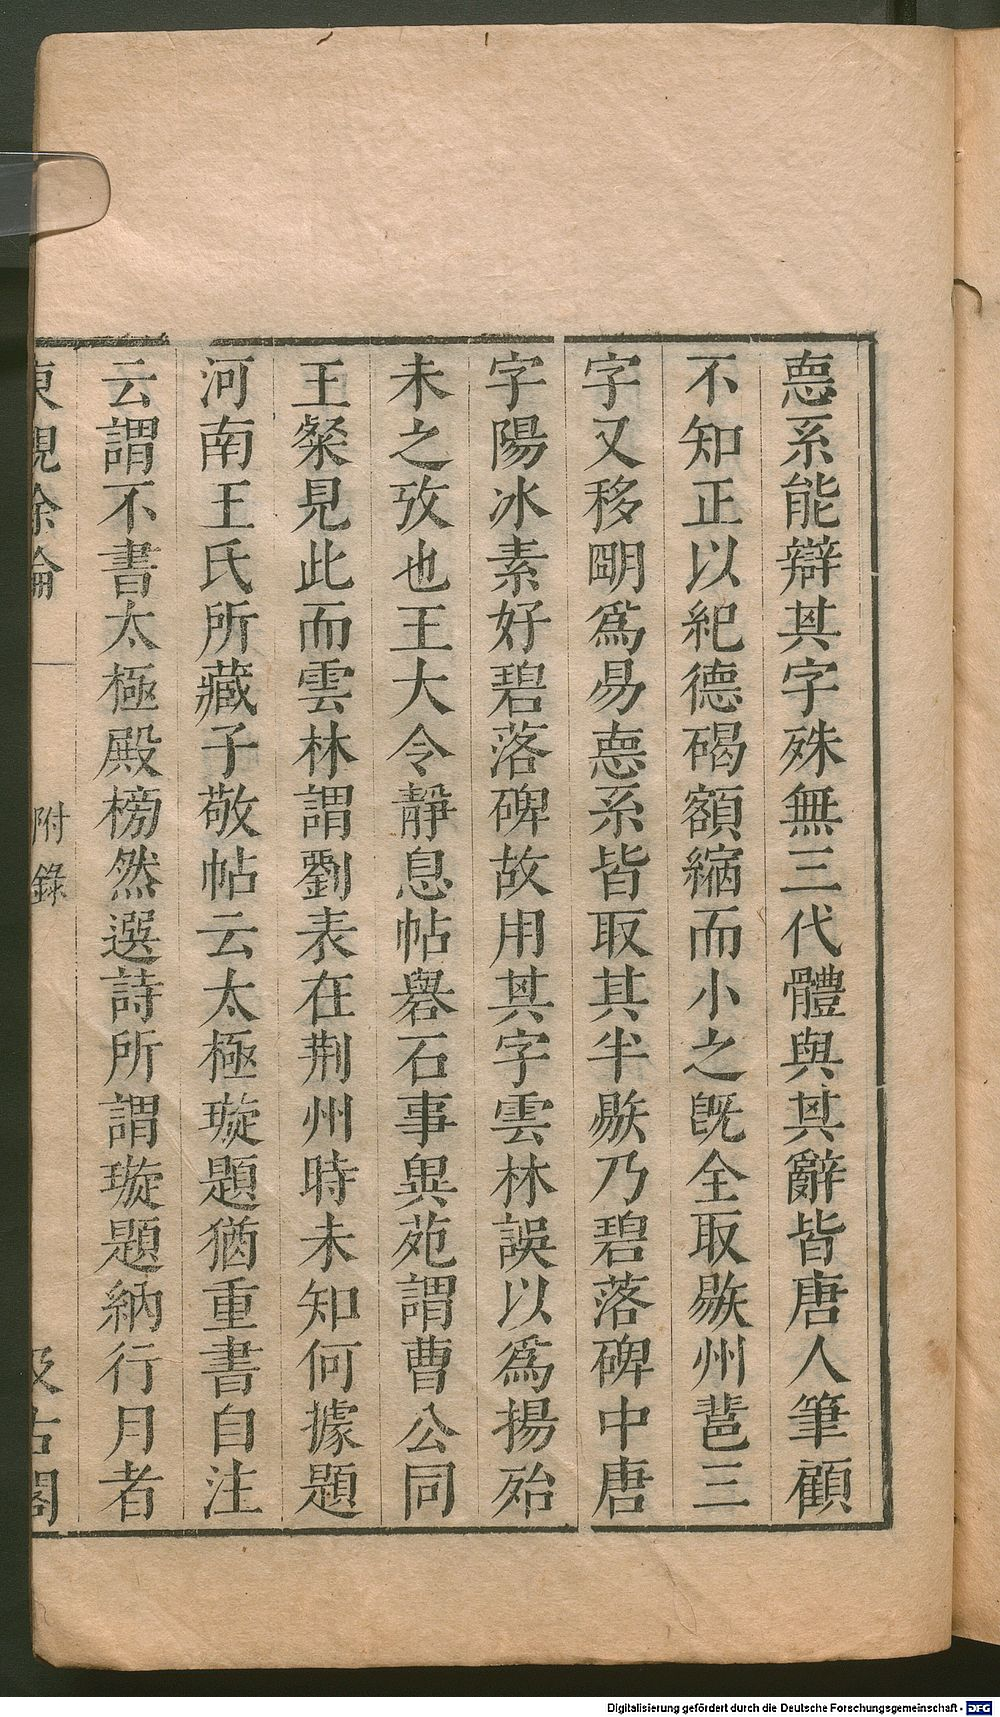 悳系能辯其字殊無三代體與其辭皆唐人筆顧
不知正以紀德碣額縮而小之旣全取歇州莒三
字又移朙爲易悳系皆取其半歇乃碧落碑中唐
字陽冰素好碧落碑故用其字雲林誤以爲揚殆
未之攷也王大令靜息帖礜石事異苑謂曹公同
王粲見此而雲林謂劉表在荆州時未知何據題
河南王氏所藏子敬帖云太極璇題猶重書自注
云謂不書太極殿榜然選詩所謂璇題納行月者
東觀餘論 附錄 汲古閣
Digitalisierung gefördert durch die Deutsche Forschungsgemeinschaft - DFG